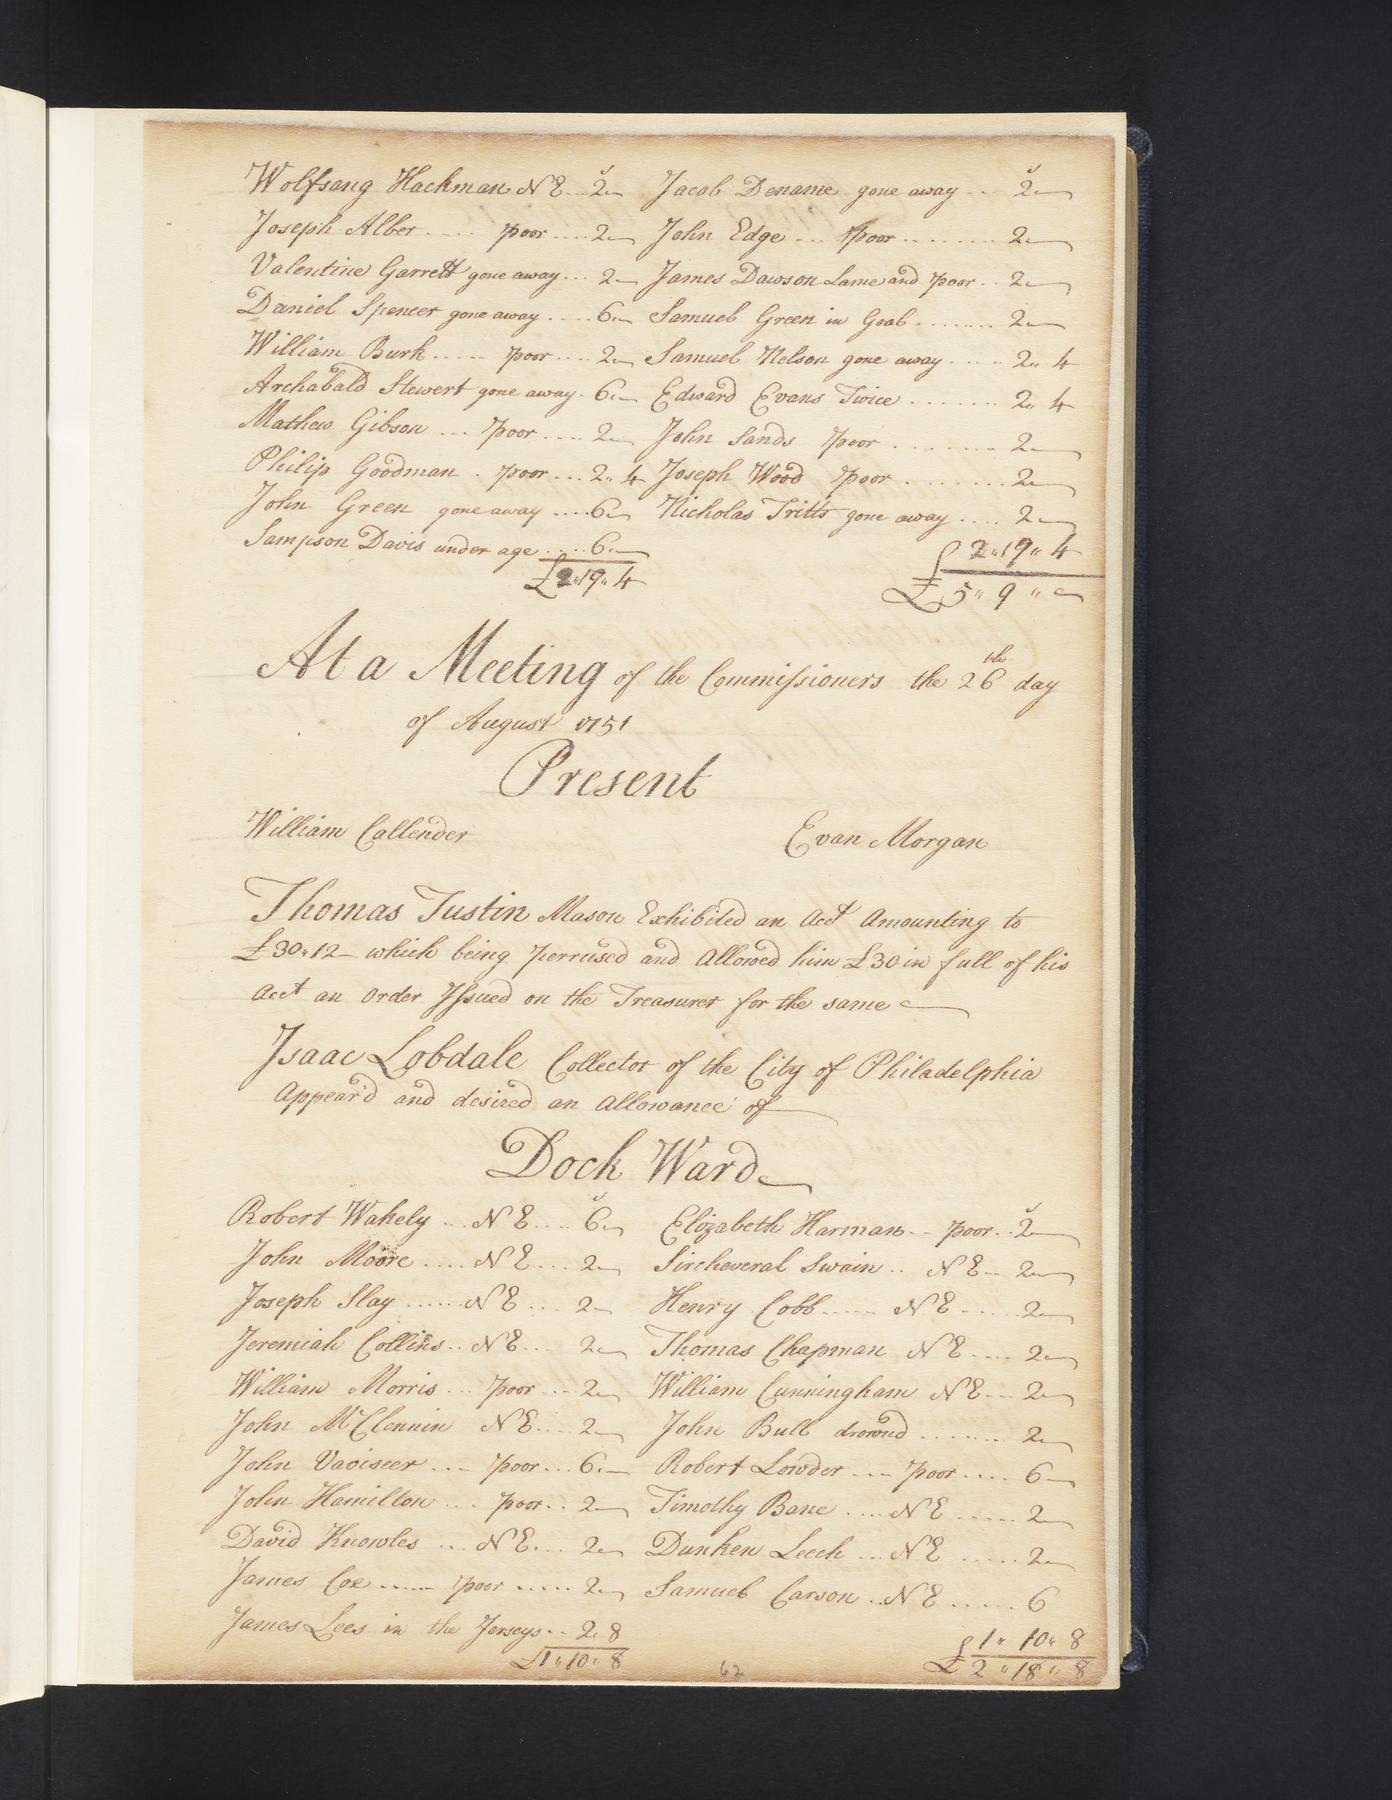 Wolfsang Hackman N E .. 2„— Jacob Dename gone away .. 2„—
Joseph Alber .... poor .... 2„— John Edge ... Poor ........ 2„—
Valentine Garrett gone away ... 2„— James Dawson Lame and poor .. 2„—
Daniel Spencer gone away .... 6„— Samuel Green in Goal ....... 2„—
William Burk ..... poor .... 2„— Samuel Nelson gone away ..... 2„ 4
Archabald Stewert gone away . 6„— Edward Evans Twice ........ 2„ 4
Mathew Gibson ... poor .... 2„— John Sands poor ......... 2„—
Philip Goodman . poor ... 2„ 4 Joseph Wood poor ........ 2„—
John Green gone away .... 6„— Nicholas Tritts gone away .... 2„—
Sampson Davis under age ..... 6„—
£2„19„ 4 2„19„ 4
£5„ 9 „ —
At a Meeting of the Commissioners the 26th day
of August 1751
Present
William Callender Evan Morgan
Thomas Tustin Mason Exhibited an Acct Amounting to
£30„12– which being perrused and Allowed him £30 in full of his
Acct an Order Issued on the Treasurer for the same
Isaac Lobdale Collector of the City of Philadelphia
Appear'd and desired an Allowance of
Dock Ward
Robert Wakely ... N E .... 6„— Elizabeth Harman .. poor .. 2„—
John Moore .... N E .... 2„— Sircheveral Swain .. N E .. 2„—
Joseph Slay ...... N E .... 2„— Henry Cobb ..... N E ..... 2„—
Jeremiah Collins .. N E .... 2„— Thomas Chapman N E .... 2„—
William Morris ... poor ... 2„— William Cunningham N E ... 2„—
John McClennin N E .... 2„— John Bull drownd ........ 2„—
John Vaoiseer ... poor ... 6„— Robert Lowder ... poor .... 6—
John Hamilton ... poor .. 2„— Timothy Bane .... N E ..... 2„—
David Knowles ... N E .... 2„— Dunken Leech ... N E ..... 2„—
James Coe ...... poor ..... 2„— Samuel Carson .. N E ..... 6
James Lees in the Jerseys .. 2„ 8
£1„10„ 8 1„ 10„ 8
62 £2„18„ 8